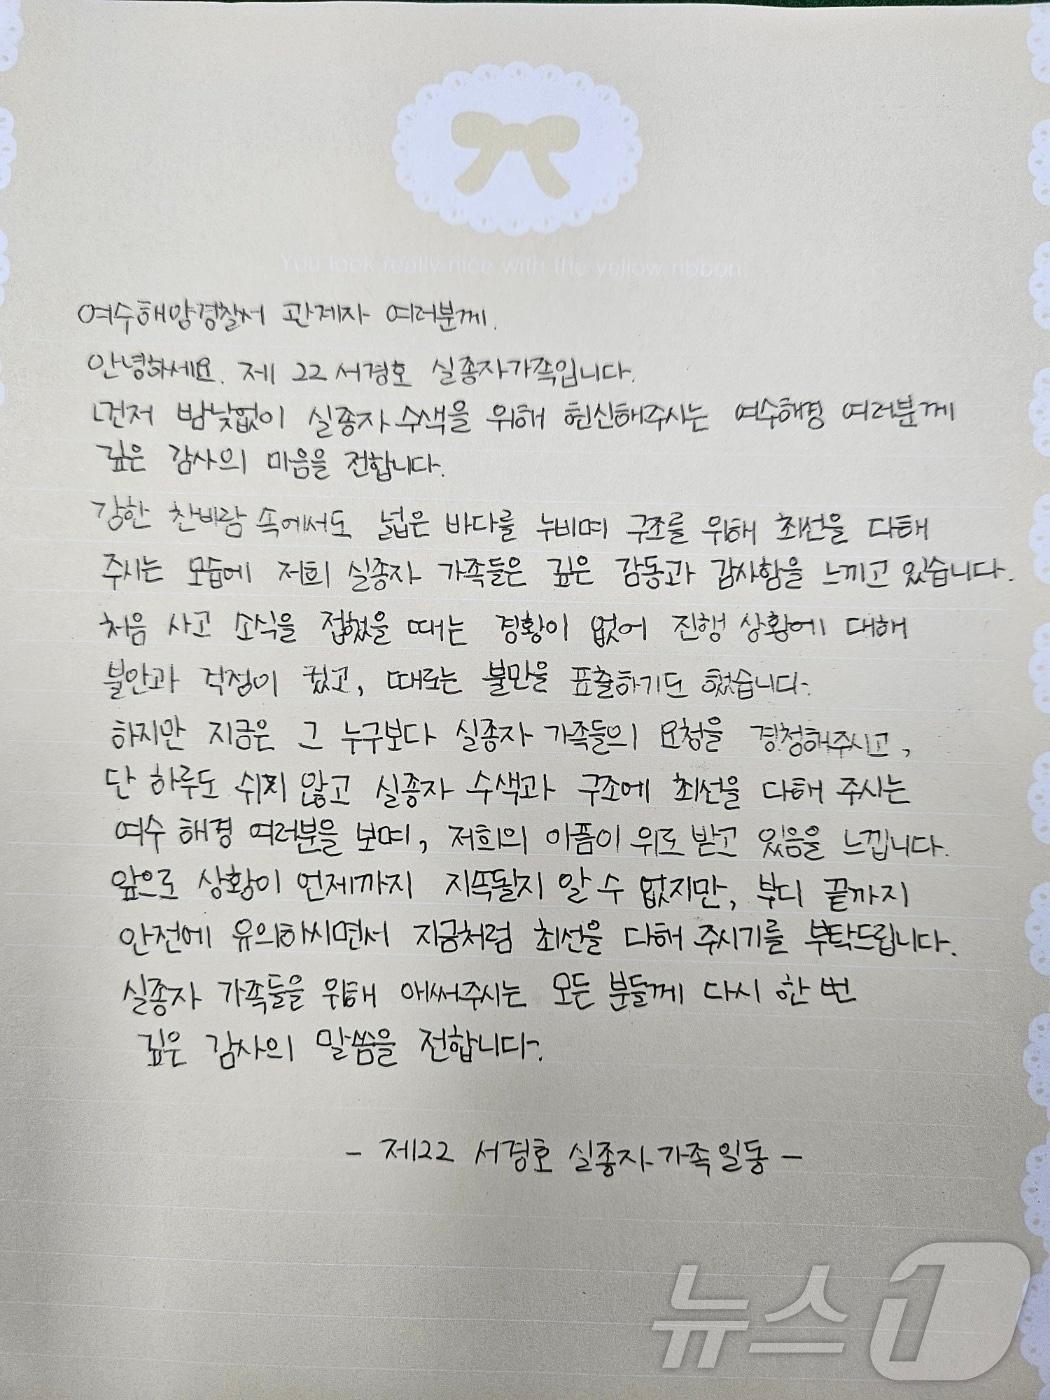 You look really nice with the yellow ribbon.
여수해양경찰서 관계자 여러분께.
안녕하세요. 제 22 서경호 실종자가족입니다.
먼저 밤낮없이 실종자 수색을 위해 헌신해주시는 여수해경 여러분께
깊은 감사의 마음을 전합니다.
강한 찬바람 속에서도 넓은 바다를 누비며 구조를 위해 최선을 다해
주시는 모습에 저희 실종자 가족들은 깊은 감동과 감사함을 느끼고 있습니다.
처음 사고 소식을 접했을 때는 경황이 없어 진행 상황에 대해
불안과 걱정이 컸고, 때로는 불만을 표출하기도 했습니다.
하지만 지금은 그 누구보다 실종자 가족들의 요청을 경청해주시고,
단 하루도 쉬지 않고 실종자 수색과 구조에 최선을 다해 주시는
여수 해경 여러분을 보며, 저희의 아픔이 위로 받고 있음을 느낍니다.
앞으로 상황이 언제까지 지속될지 알 수 없지만, 부디 끝까지
안전에 유의하시면서 지금처럼 최선을 다해 주시기를 부탁드립니다.
실종자 가족들을 위해 애써주시는 모든 분들께 다시 한 번
깊은 감사의 말씀을 전합니다.
- 제22 서경호 실종자 가족 일동 -
뉴스1